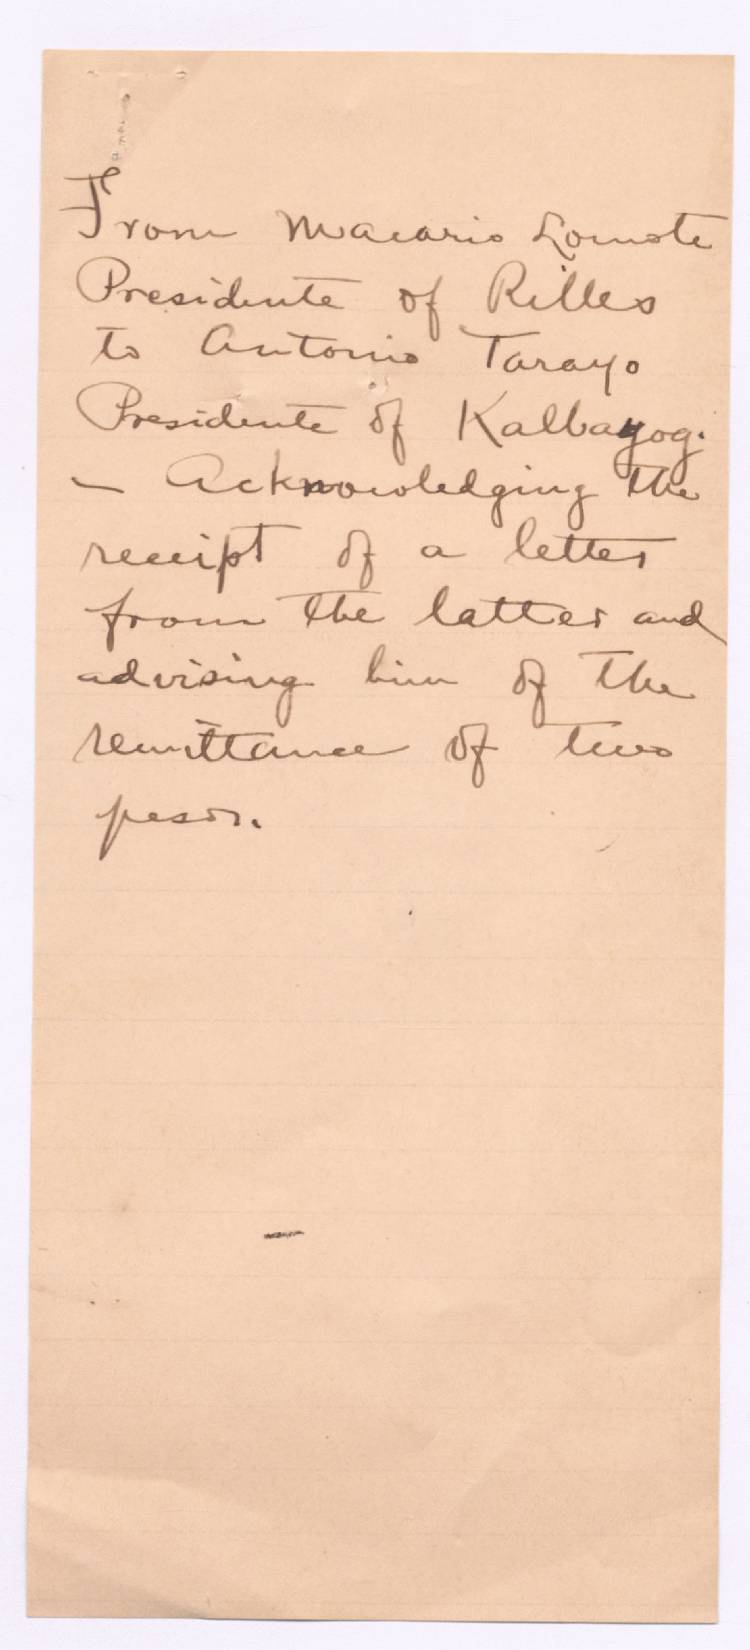 From Macario Lomote
Presidente of Rilles
to Antonio Tarayo
Presidente of Kalbayog.
— Acknowledging the
receipt of a letter
from the latter and
advising him of the
remittance of two
pesos.